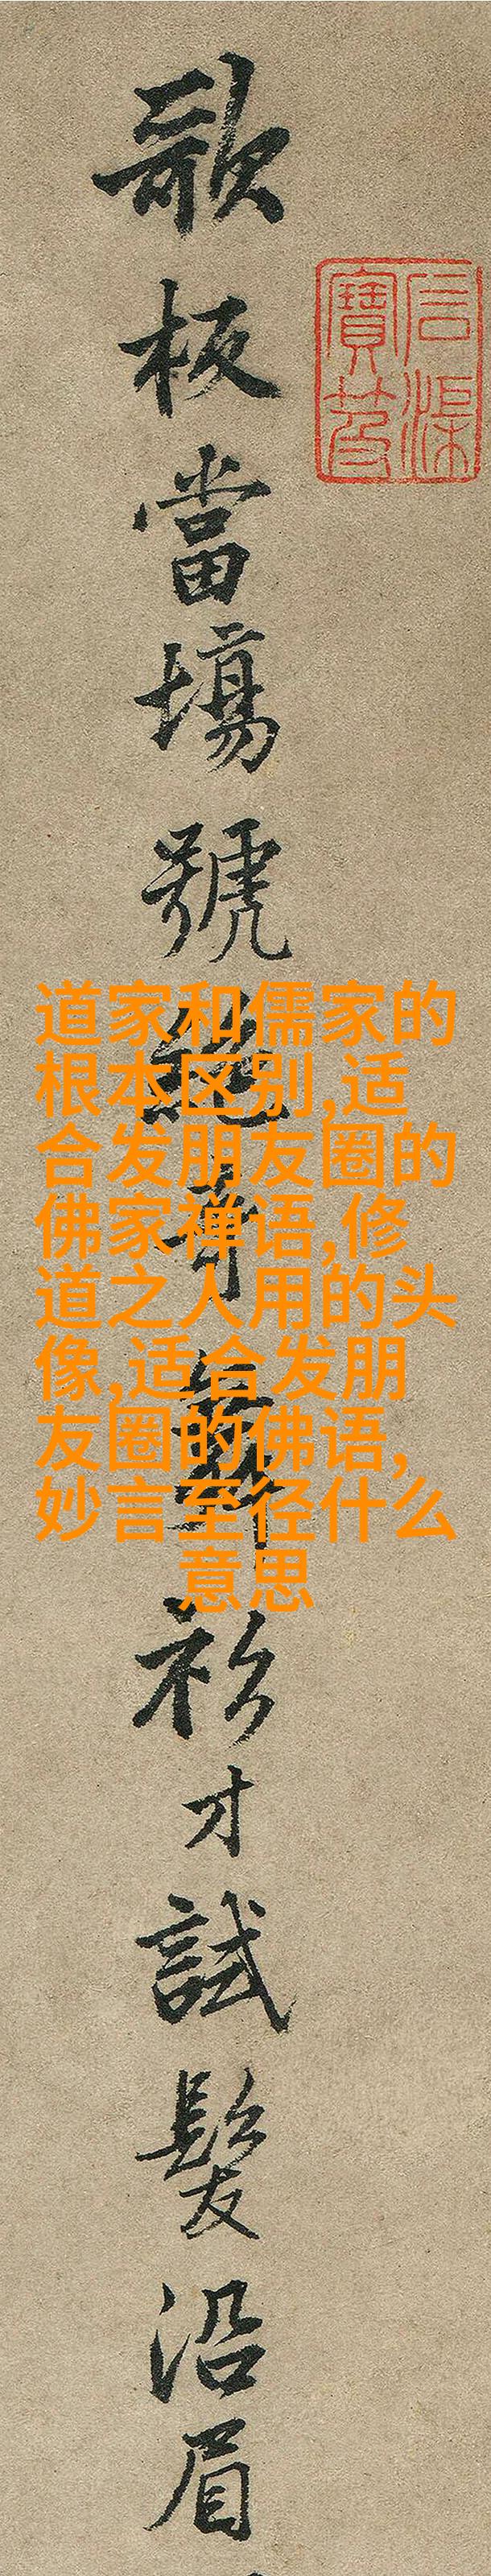 歌板當塲號絶奇舞衫才試髮沿眉
石渠
寶笈
道家和儒家的
根本区别,适
合发朋友圈的
佛家禅语,修
道之人用的头
像,适合发朋
友圈的佛语,
妙言至径什么
意思